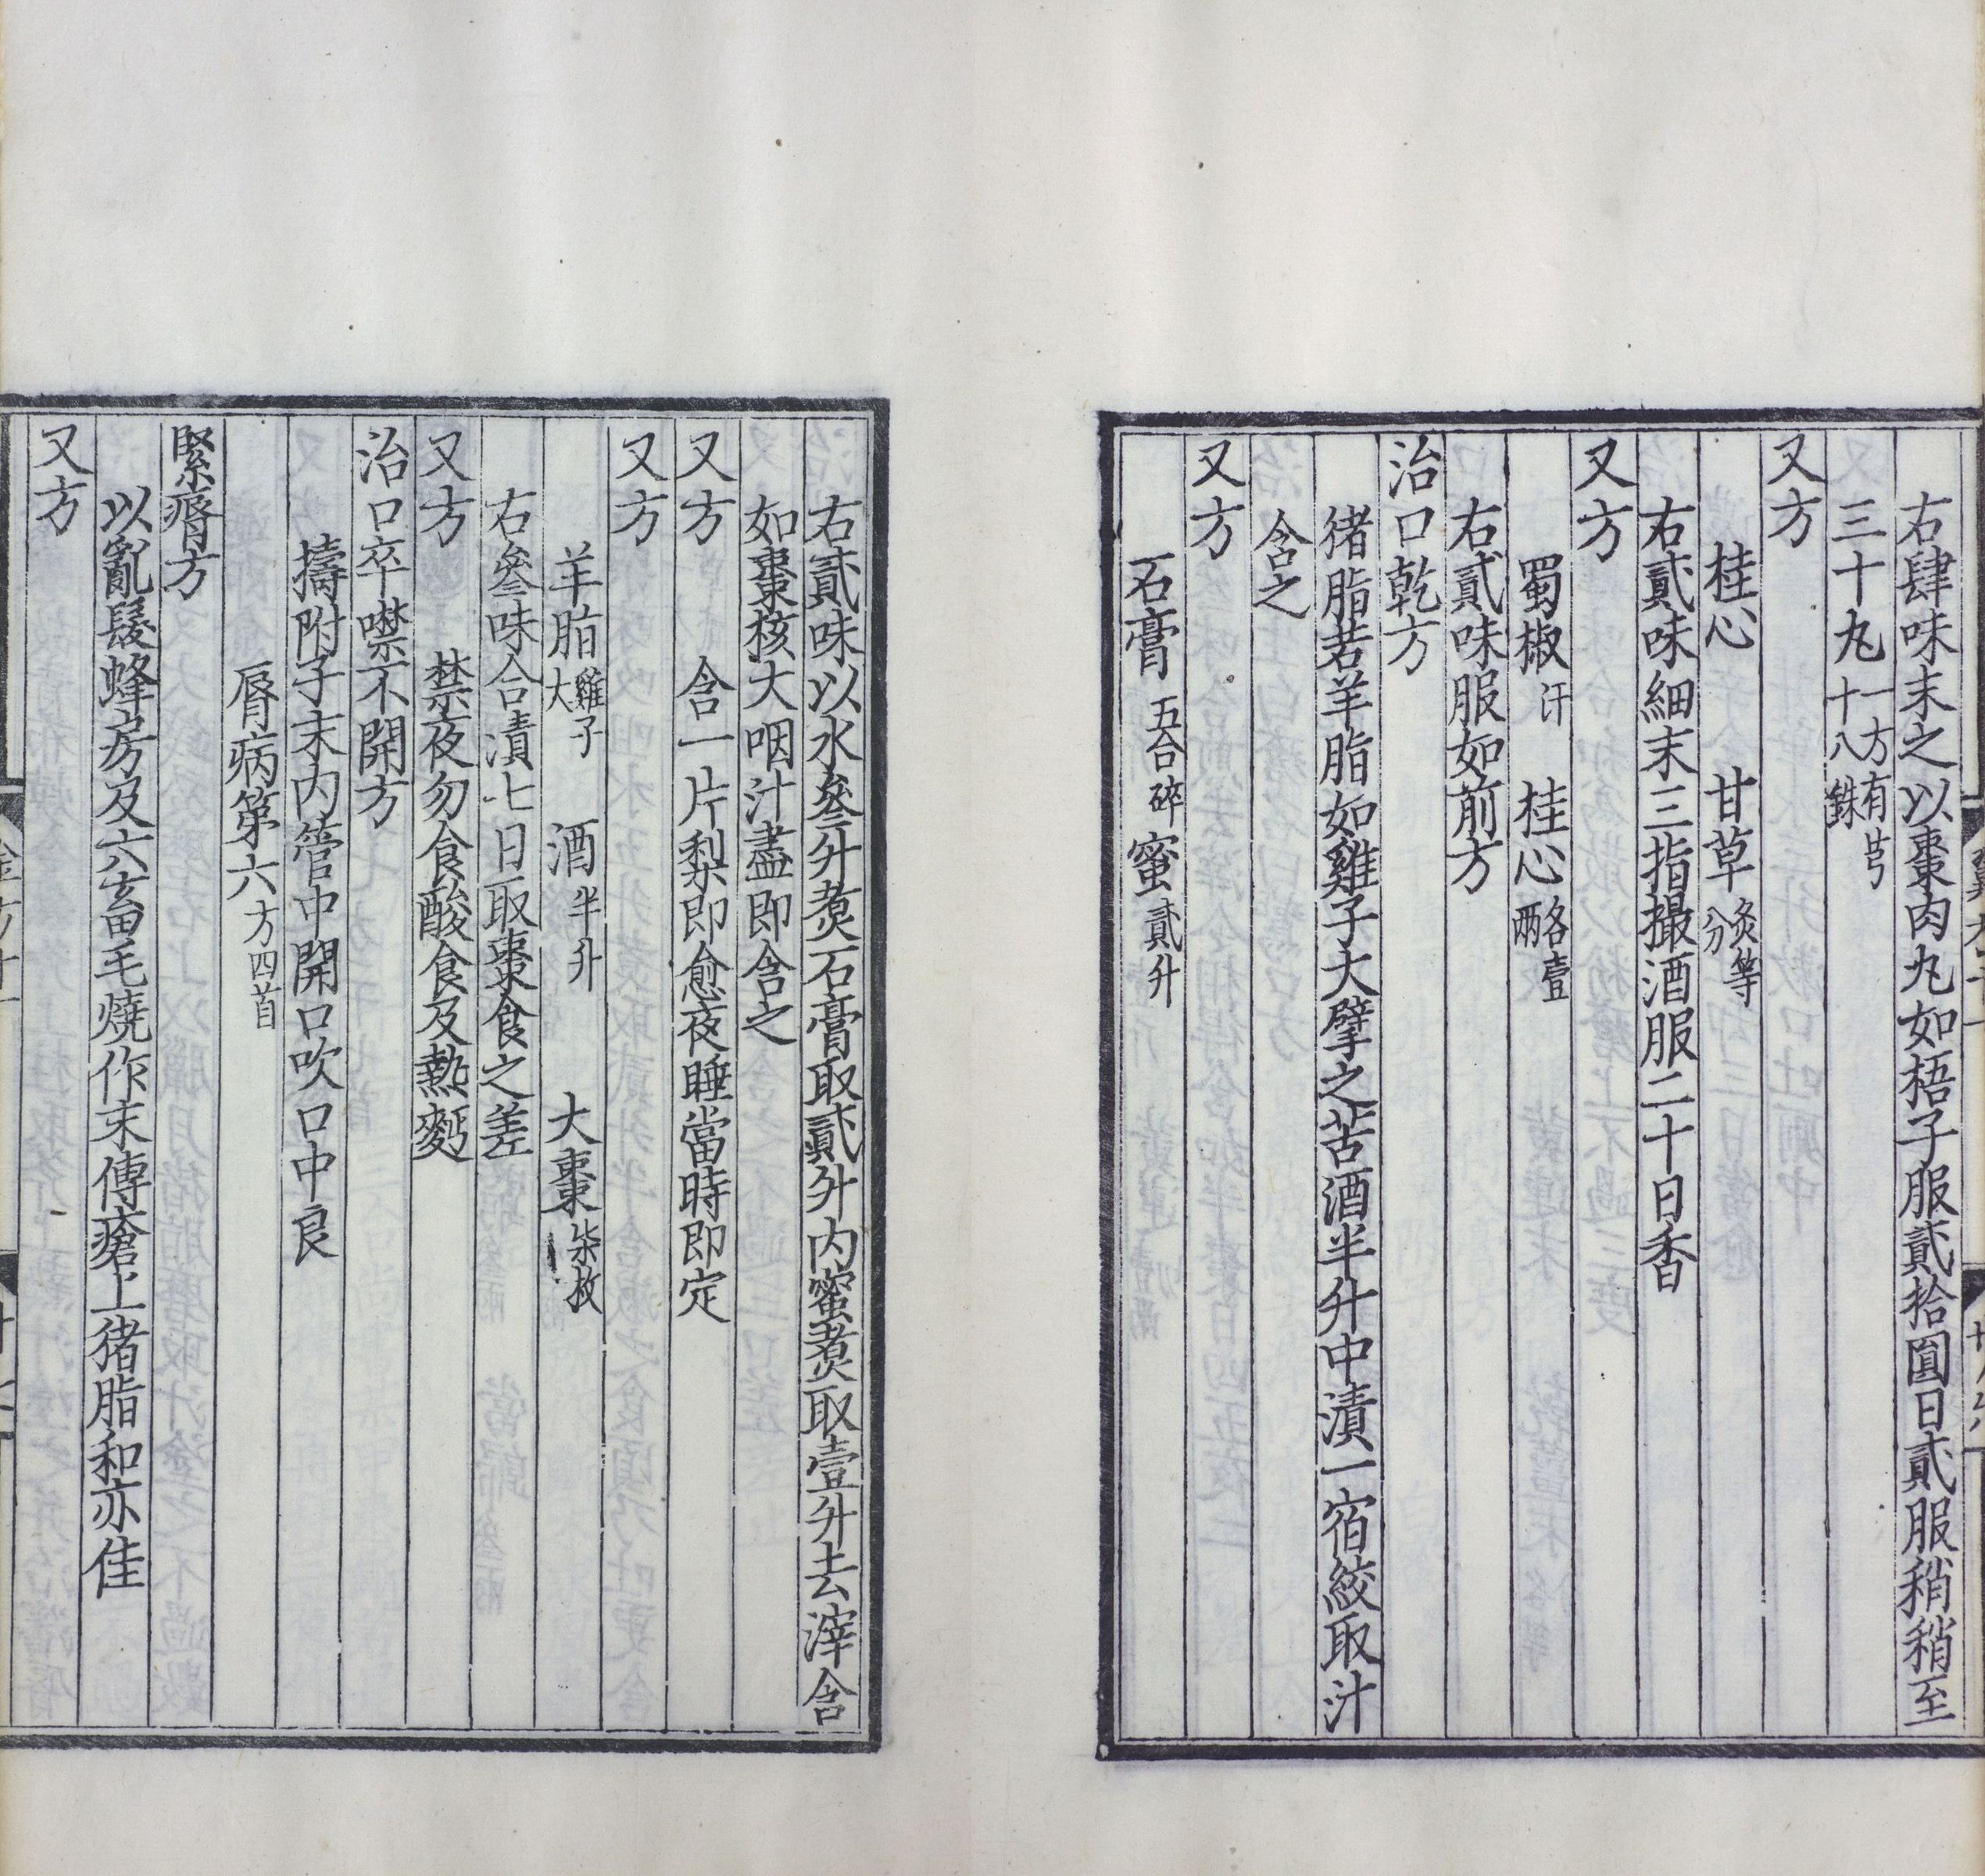 右肆味末之以棗肉丸如梧子服貳拾圓日貳服稍稍至
三十丸一方有芎十八銖
又方
桂心　甘草炙等分
右貳味細末三指撮酒服二十日香
又方
蜀椒汗　桂心各壹兩
右貳味服如前方
治口乾方
猪脂若羊脂如雞子大擘之苦酒半升中漬一宿絞取汁
含之
又方
石膏五合碎　蜜貳升
右貳味以水叄升煑石膏取貳升内蜜煑取壹升去滓含
如棗核大咽汁盡即含之
又方　含一片梨即愈夜睡當時即定
又方
羊脂雞子大　酒半升　大棗柒枚
右叄味合漬七日取棗食之差
又方　禁夜勿食酸食及熱麪
治口卒噤不開方
擣附子末内管中開口吹口中良
脣病第六方四首
緊脣方
以亂髮蜂房及六畜毛燒作末傅瘡上猪脂和亦佳
又方